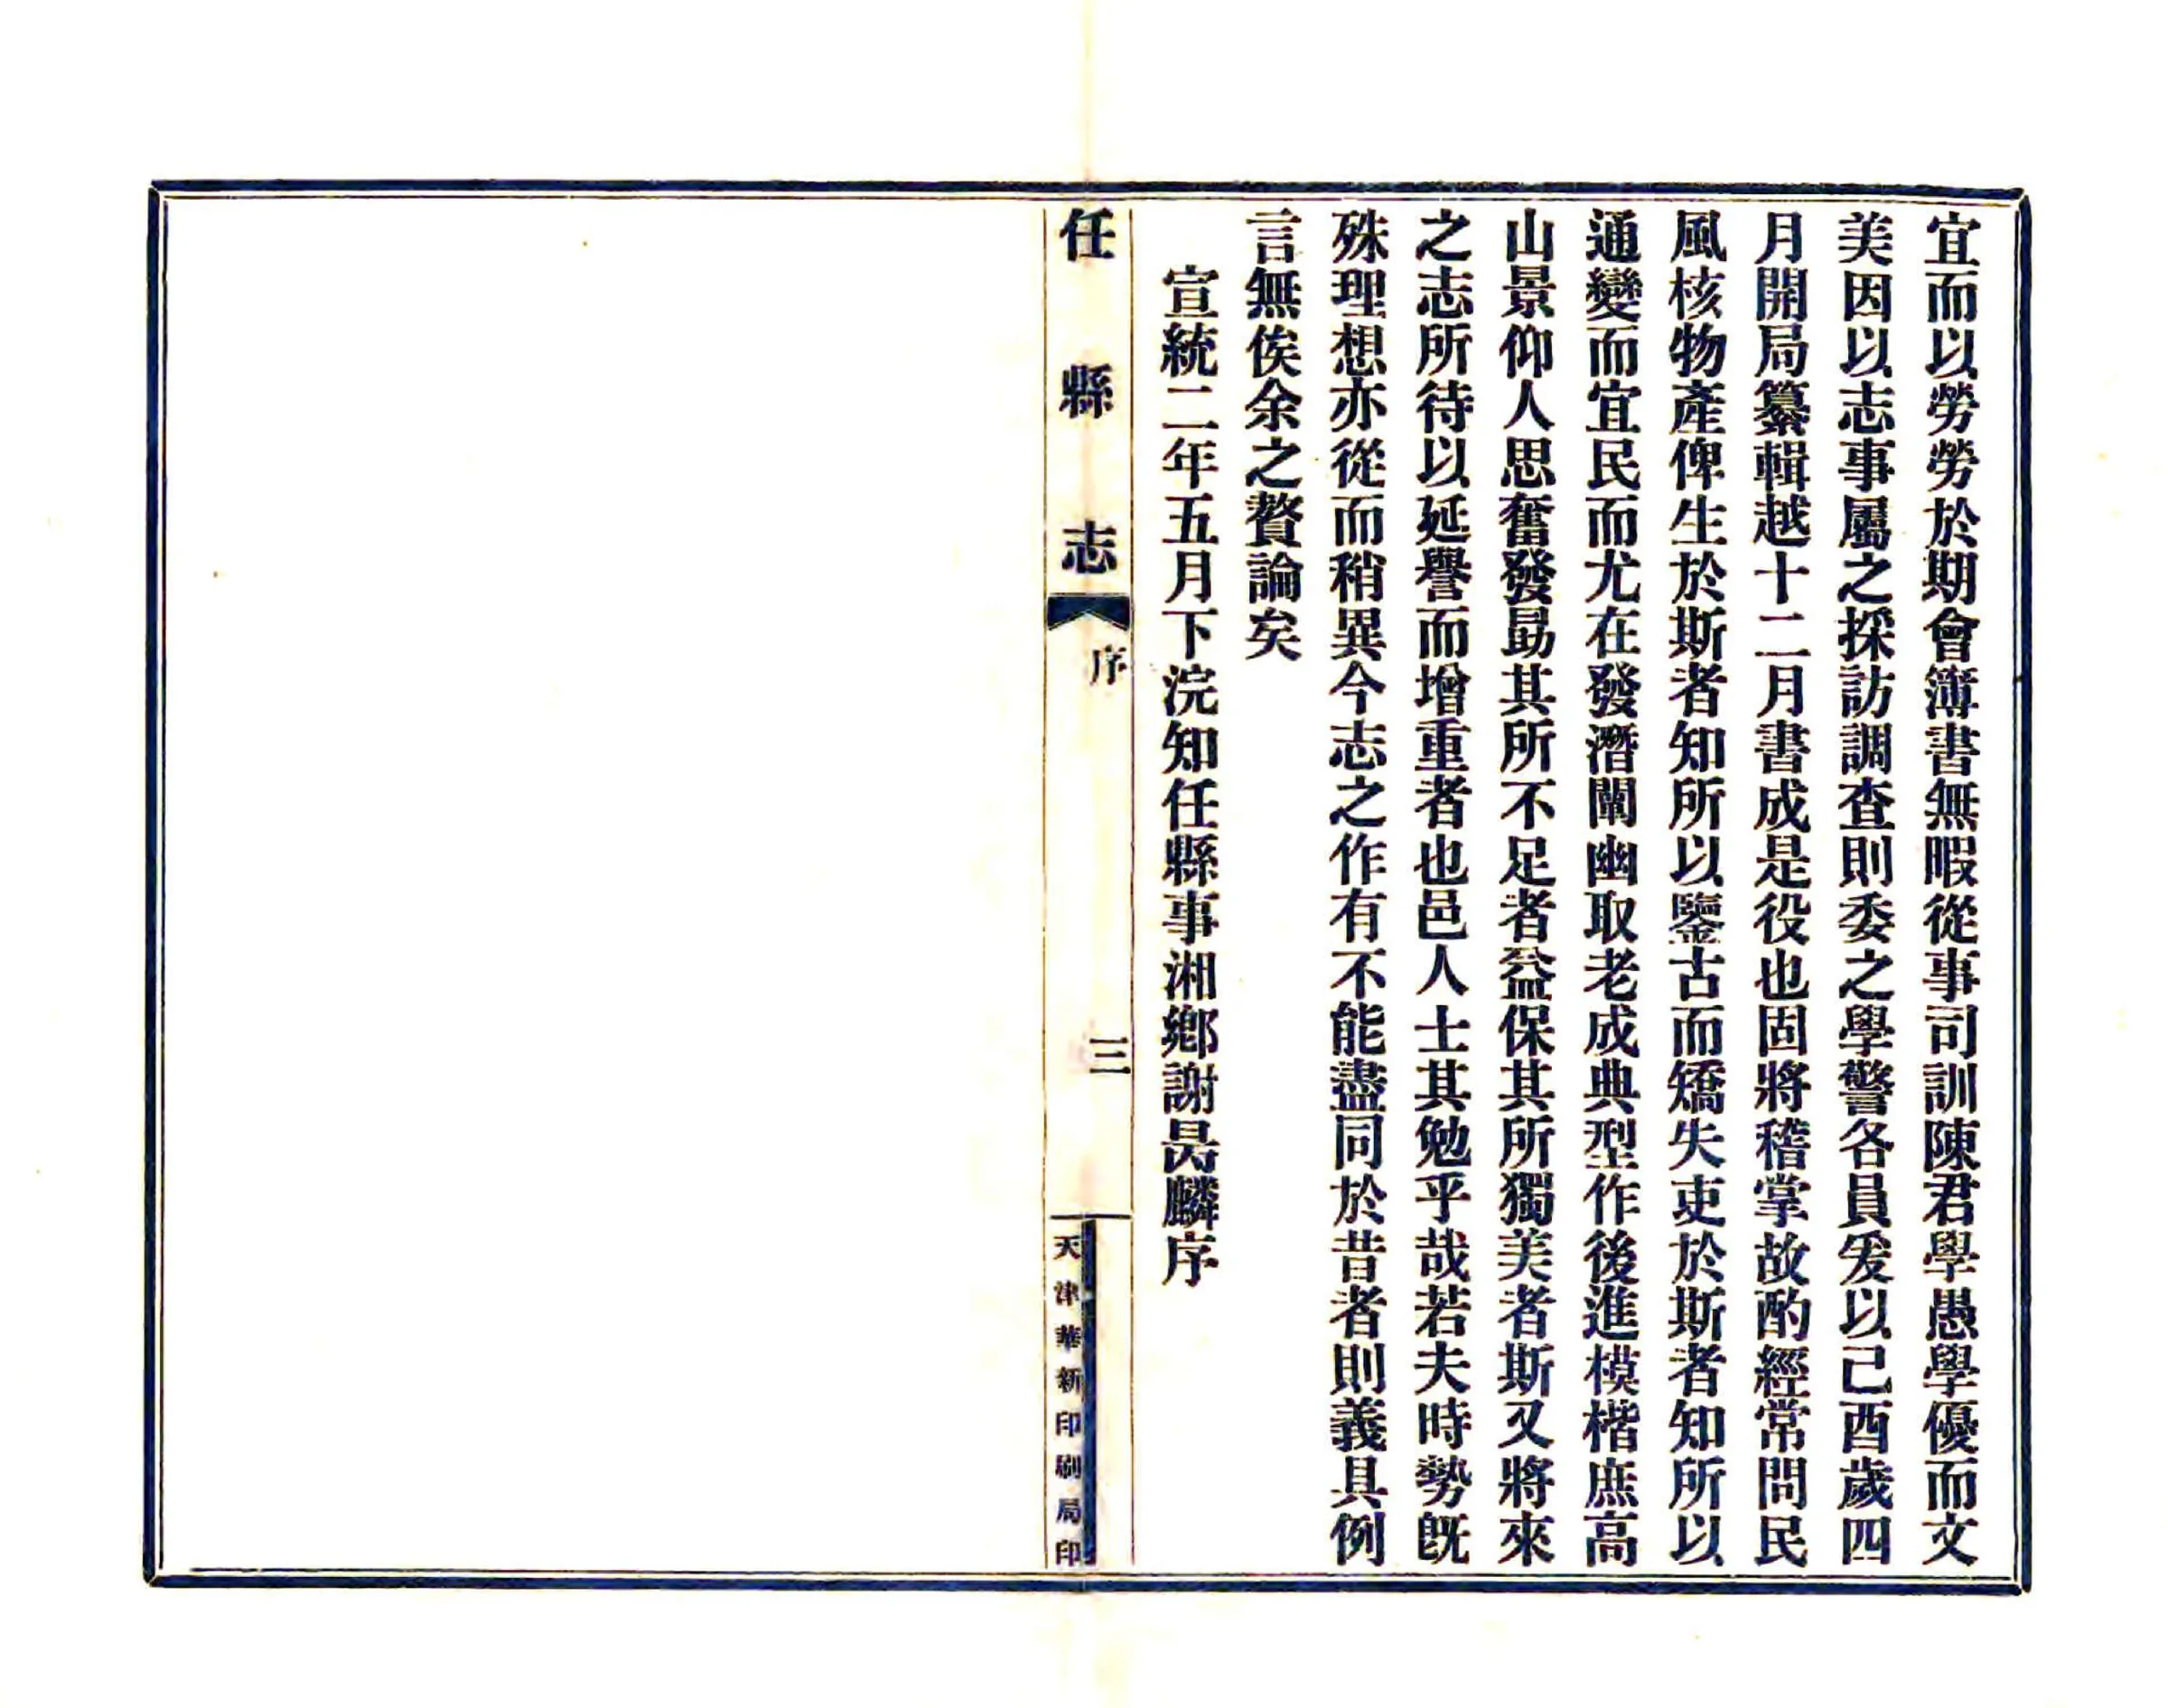 宜而以勞勞於期會簿書無暇從事司訓陳君學愚學優而文
美因以志事屬之採訪調查則委之學警各員爰以己酉歲四
月開局纂輯越十二月書成是役也固將稽掌故酌經常問民
風核物產俾生於斯者知所以鑒古而矯失吏於斯者知所以
通變而宜民而尤在發潛闡幽取老成典型作後進模楷庶高
山景仰人思奮發勗其所不足者益保其所獨美者斯又將來
之志所待以延譽而增重者也邑人士其勉乎哉若夫時勢既
殊理想亦從而稍異今志之作有不能盡同於昔者則義具例
言無俟余之贅論矣
宣統二年五月下浣知任縣事湘鄉謝昺麟序
任縣志
序
三
天津華新印刷局印